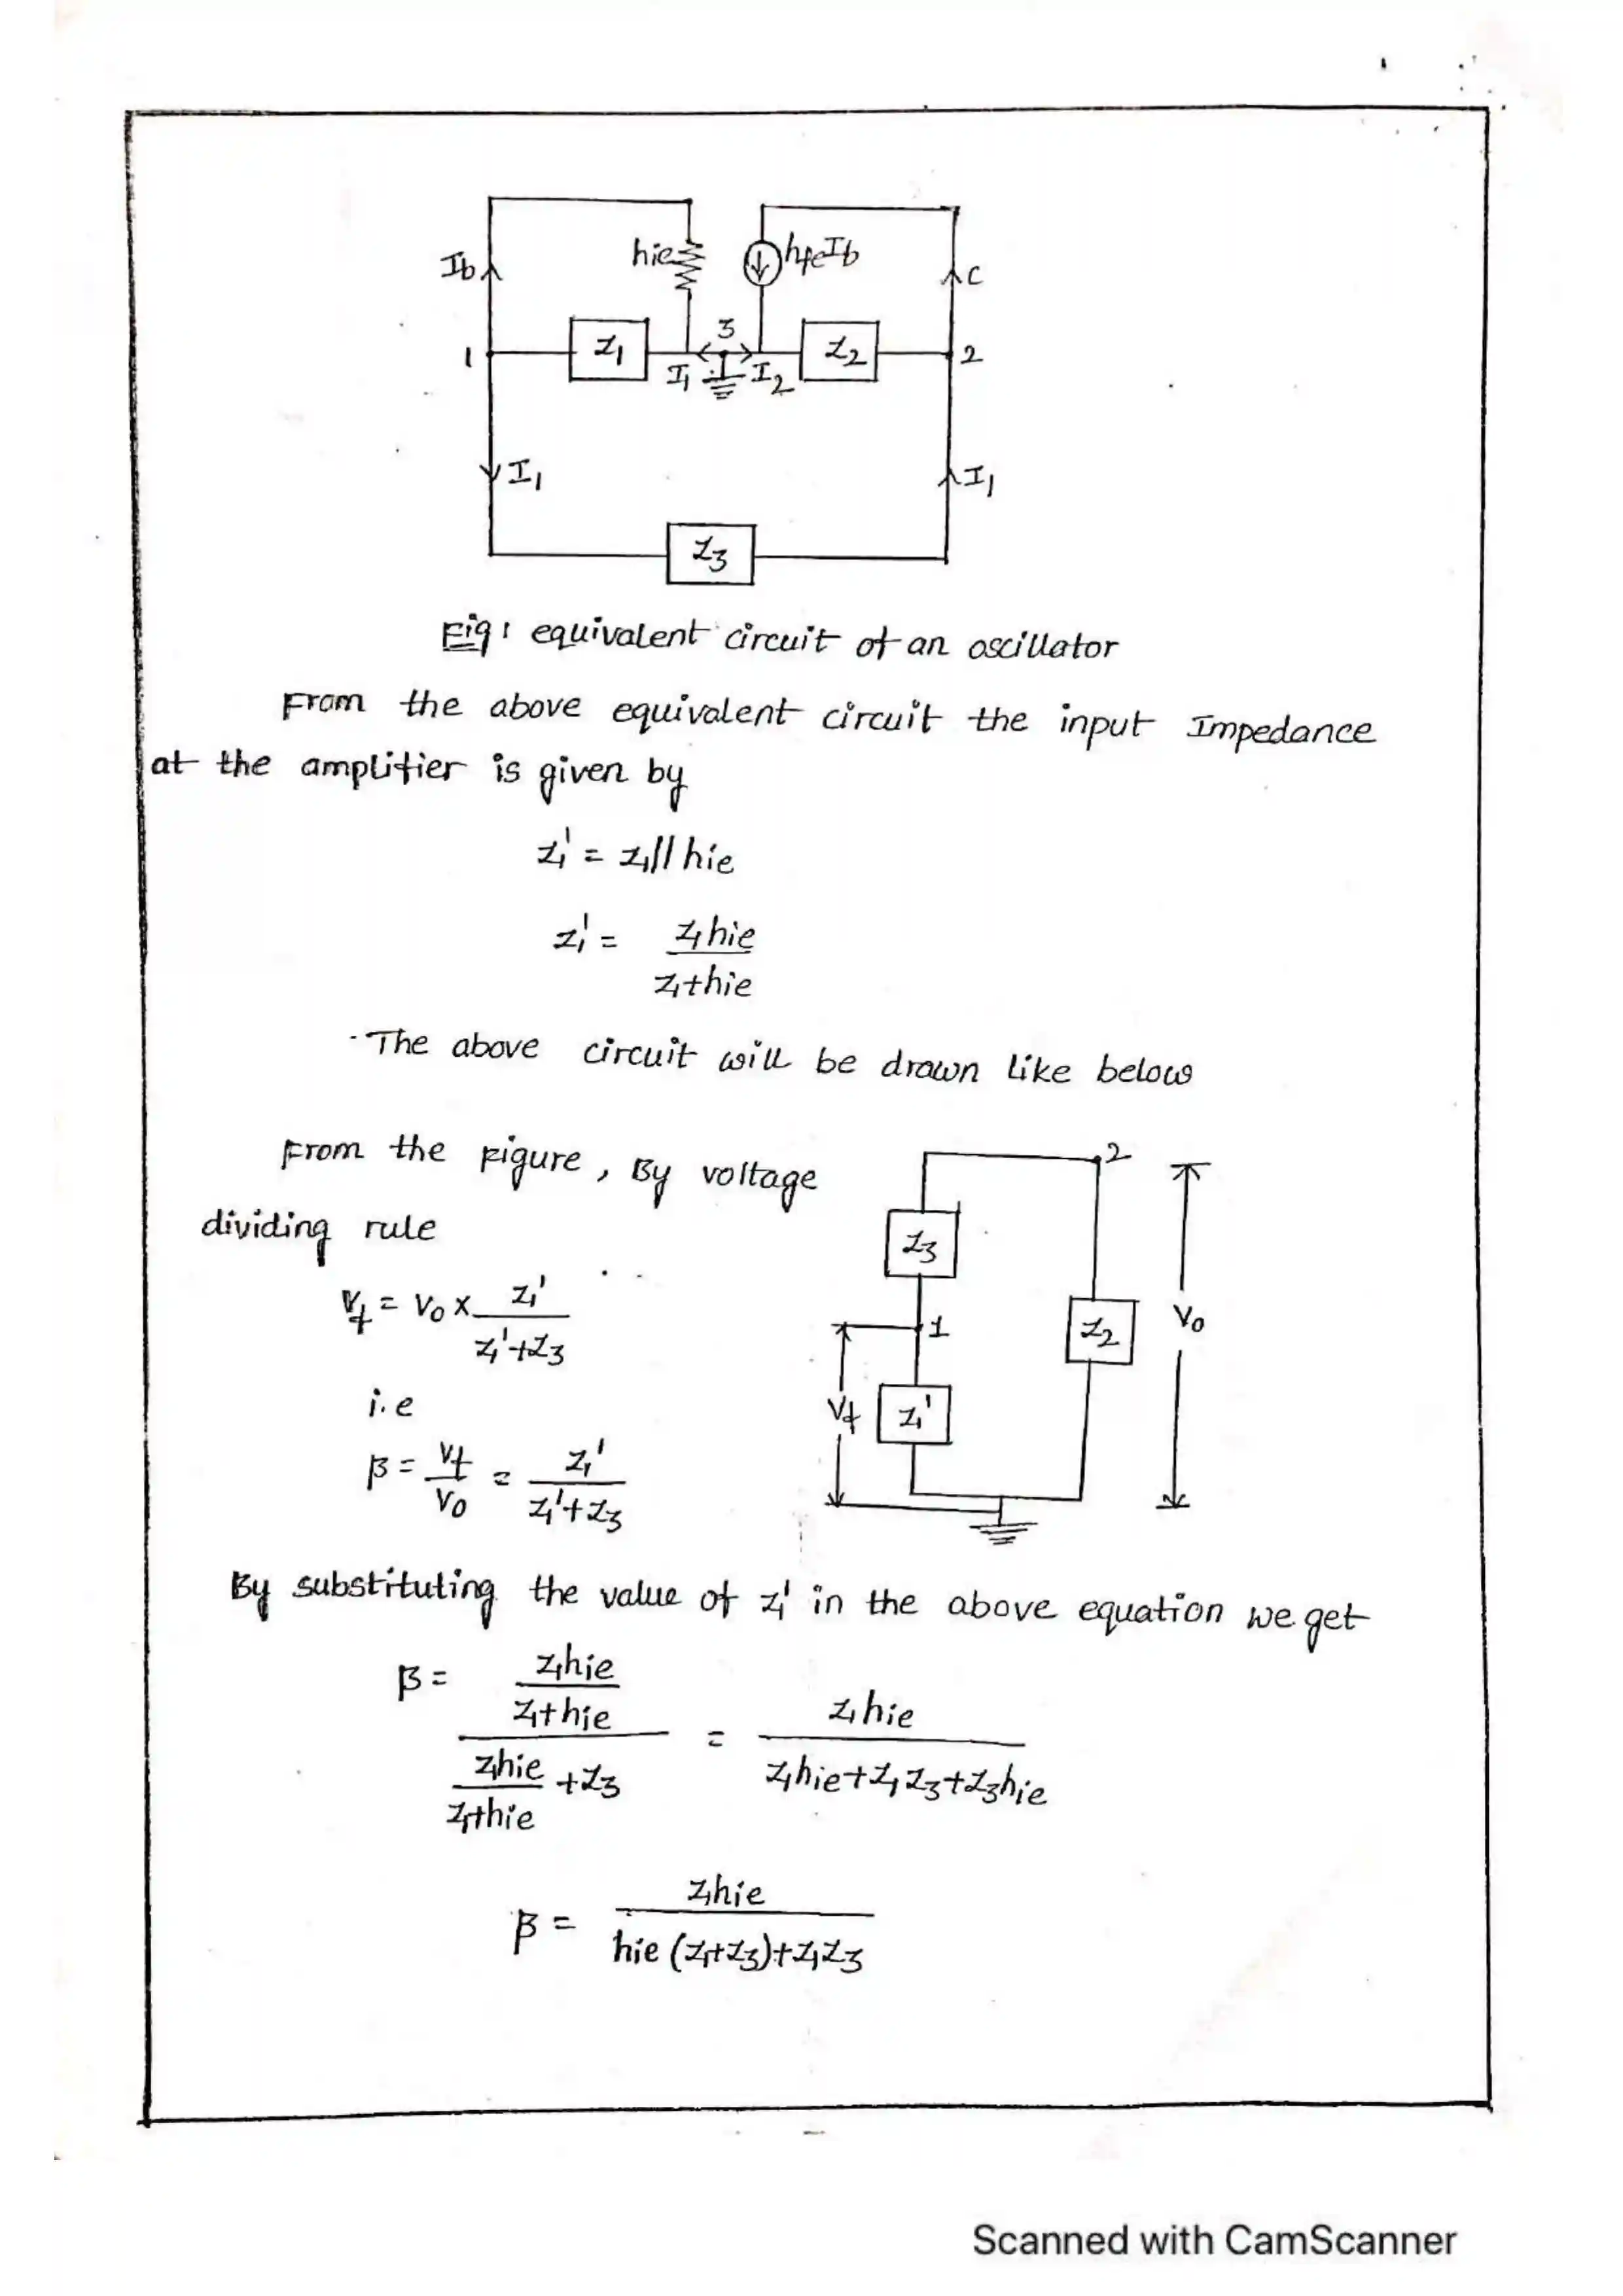 Ib hie hfeIb C
1 Z1 3 Z2 2
I1 I2
I1 I1
Z3
Fig: equivalent circuit of an oscillator
From the above equivalent circuit the input Impedance
at the amplifier is given by
Z1' = Z1//hie
Z1' = Z1hie / Z1+hie
The above circuit will be drawn like below
From the Figure, By voltage
dividing rule
Vf = Vo x Z1' / Z1'+Z3
i.e
β = Vf / Vo = Z1' / Z1'+Z3
2
Z3
1
Z2
Vo
Vf
Z1'
By substituting the value of Z1' in the above equation we get
β = (Z1hie / Z1+hie) / (Z1hie / Z1+hie + Z3) = Z1hie / Z1hie+Z1Z3+Z3hie
β = Z1hie / hie(Z1+Z3)+Z1Z3
Scanned with CamScanner